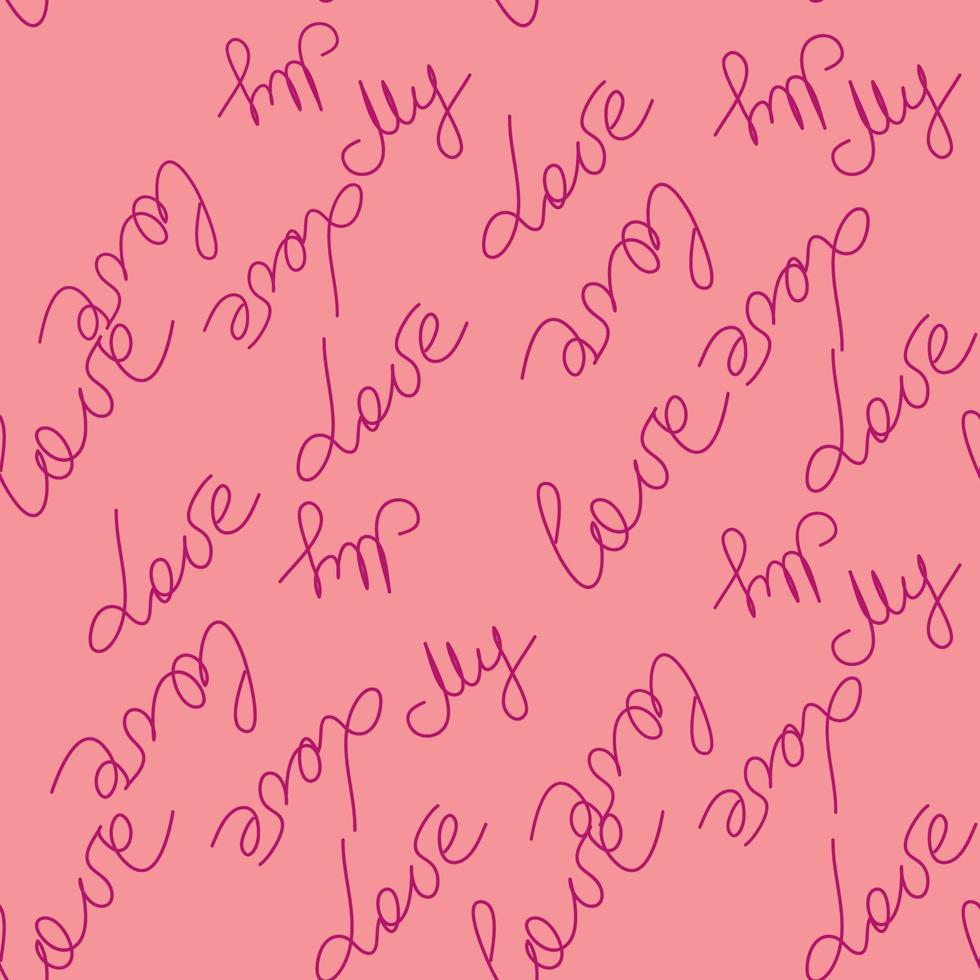 My
My
Love
My
My
love
Love
love
Love
love
Love
love
Love
Love
My
My
My
love
My
Love
love
Love
love
Love
love
Love